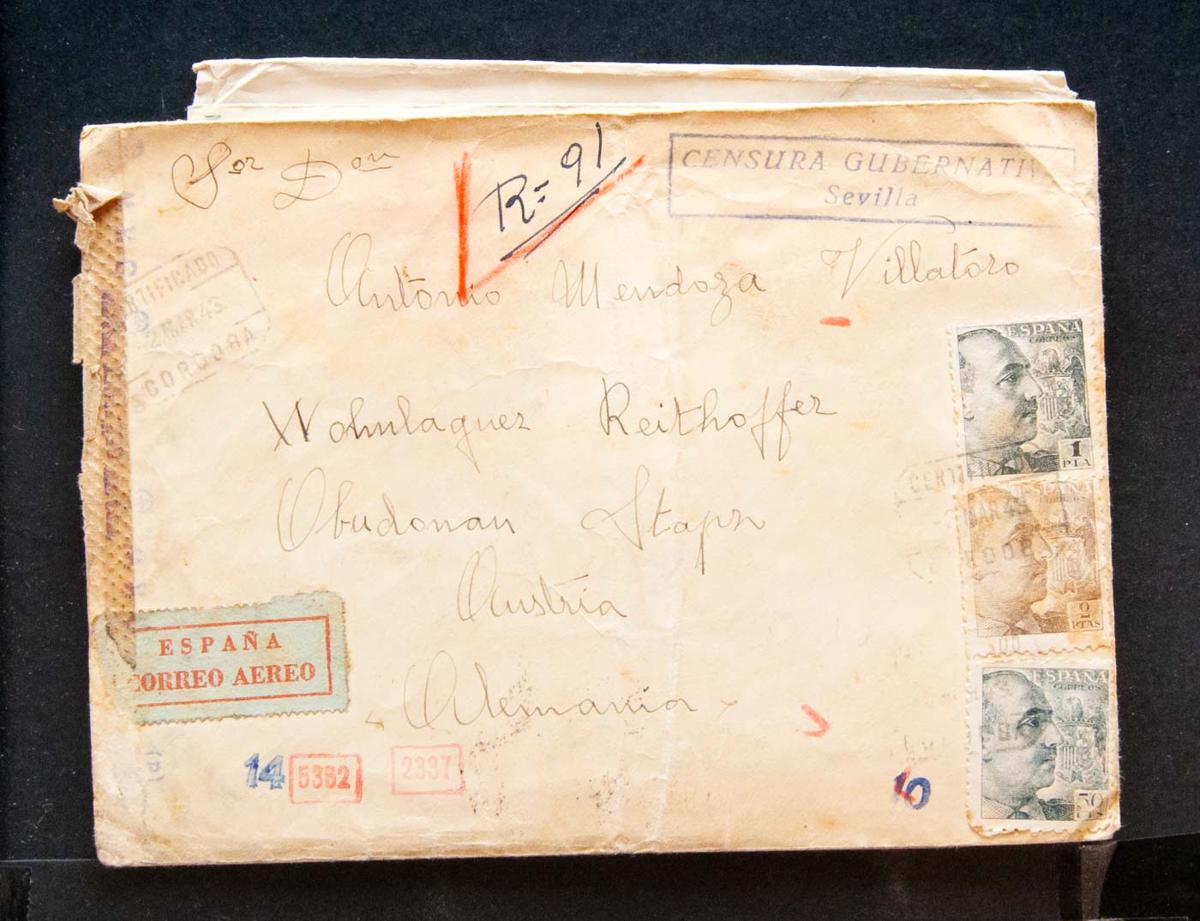 Sor Don
R= 91
CENSURA GUBERNATIV
Sevilla
Antonio Mendoza Villatoro
CERTIFICADO
2 MAR.43
CORDOBA
Wohnlaguer Reithoffer
Obudonau Stapr
Austria
Alemania
ESPAÑA
CORREO AEREO
14
5362
2337
10
ESPAÑA
CORREOS
1
PTA
CERTIFI
MAR 43
DOB
2
PTAS
ESPAÑA
CORREOS
50
CTS